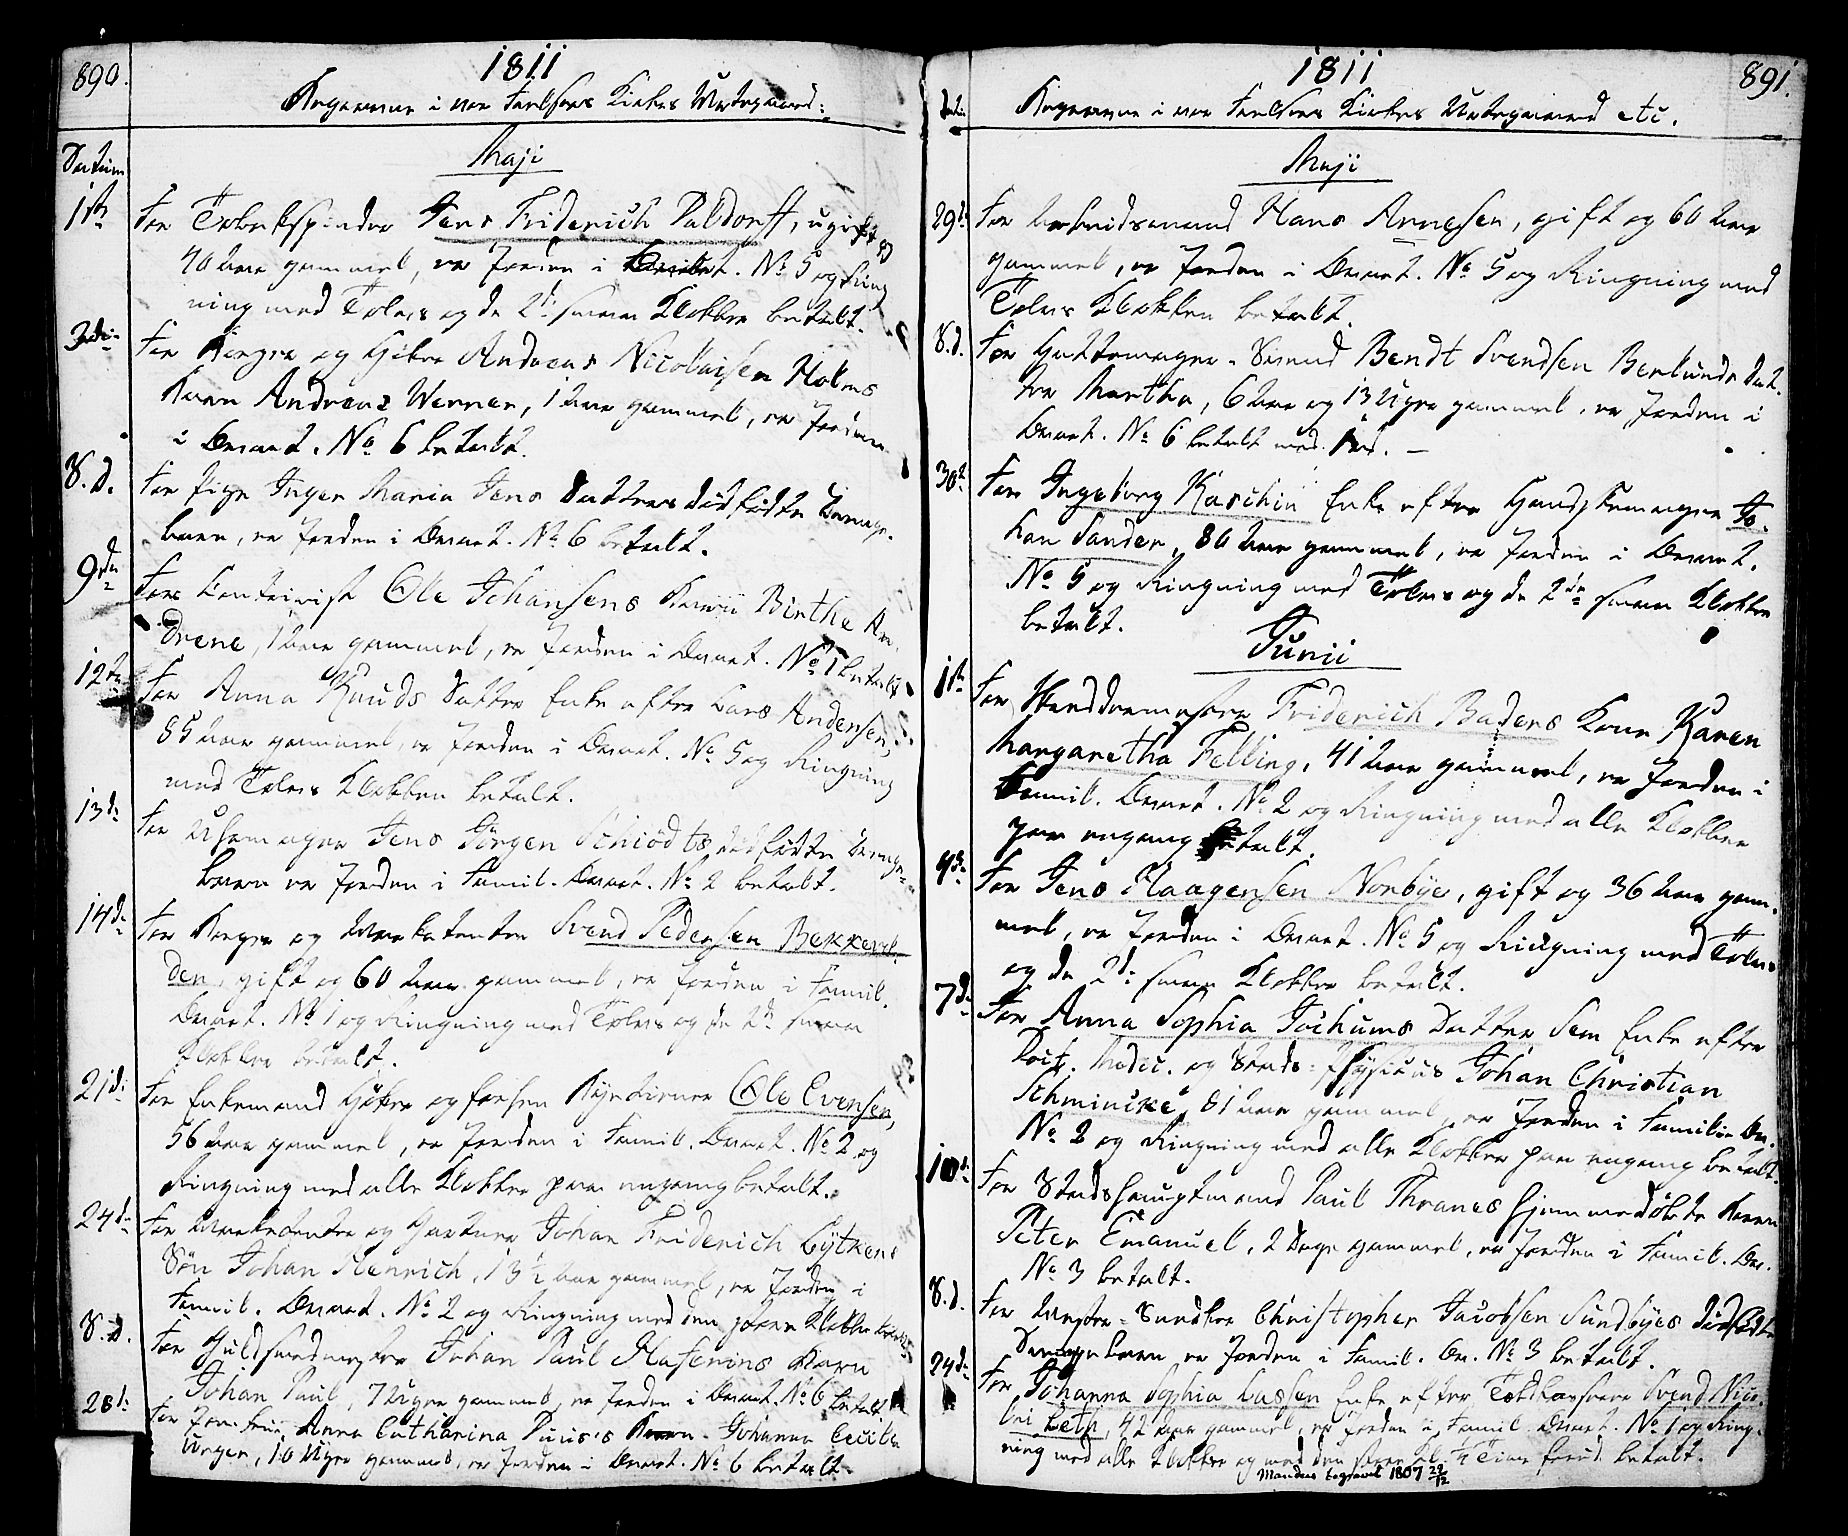 890.
1811
Begravne i vor Frelsers Kirkes Urtegaard:
Datum
Maji
1ste
For Tobakspinder Jens Friderich Paldorff, ugift og
40 Aar gammel, er Jorden i Qvart. No 5 og Ring
ning med Taarn og de 2de smaa Klokker betalt.
3die
For Borger og Høker Andreas Nicolaisen Holms
Barn Andreas Werner, 1 Aar gammel, er Jorden
i Qvart. No 6 betalt.
S. D.
For Pige Inger Maria Jens Datters dødfødte Drenge-
barn, er Jorden i Qvart. No 6 betalt.
9de
For Ole Johansens Barn Birthe An-
drene, 1 Aar gammel, er Jorden i Qvart. No 1 betalt
12te
For Anna Knuds Datter Enke efter Lars Andersen,
85 Aar gammel, er Jorden i Qvart. No 5 og Ringning
med Taarn Klokken betalt.
13de
For Uhrmager Jens Jörgen Schiödts dødfødte Drenge-
barn er Jorden i Famil. Qvart. No 2 betalt.
14de
For Borger og Svend Pedersen Bekkevol-
den, gift og 60 Aar gammel, er Jorden i Famil.
Qvart. No 1 og Ringning med Taarn og de 2de smaa
Klokker betalt.
21de
For Enkemand Høker og forhen Ole Evensen,
56 Aar gammel, er Jorden i Famil. Qvart. No 2 og
Ringning med alle Klokker paa engang betalt.
24de
For og Gartner Johan Friderich Lÿtkens
Søn Johan Henrich, 13½ Aar gammel, er Jorden i
Famil. Qvart. No 2 og Ringning med den store Klokke betalt
S. D.
For Guldsmedmester Johan Paul Barn
Johan Paul, 7 Uger gammel, er Jorden i Qvart. No 6 betalt
28de
For Anna Catharina Barn Johanna Cecilia
10 Uger gammel, er Jorden i Qvart. No 6 betalt.
891.
1811
Begravne i vor Frelsers Kirkes Urtegaard etc.
Maji
29de
For Arbeidsmand Hans Arnesen, gift og 60 Aar
gammel, er Jorden i Qvart. No 5 og Ringning med
Taarn Klokken betalt.
S. d.
For Hattemager-Svend Bendt Svendsen Berlunds Dat-
ter Martha, 6 Aar og 13 Uger gammel, er Jorden i
Qvart. No 6 betalt med
30te
For Ingeborg Kaschin Enke efter Handskemager Jo-
han Sander, 80 Aar gammel, er Jorden i Qvart.
No 5 og Ringning med Taarn og de 2de smaa Klokker
betalt.
Junii
1ste
For Friderich Baders Kone Karen
Margaretha Felling, 41 Aar gammel, er Jorden i
Famil. Qvart. No 2 og Ringning med alle Klokker
paa engang betalt.
4de
For Jens Haagensen Norbye, gift og 36 Aar gam-
mel, er Jorden i Qvart. No 5 og Ringning med Taarn
og de 2de smaa Klokker betalt.
7de
For Anna Sophia Jochums Datter Sem Enke efter
Doct. Medic. og Stads-Physicus Johan Christian
Schmincke, 81 Aar gammel, er Jorden i Familie Qv.
No 2 og Ringning med alle Klokker paa engang betalt.
10de
For Stadshauptmand Paul Thranes hjemmedøbte Barn
Peter Emanuel, 2 Dage gammel, er Jorden i Famil. Qv.
No 3 betalt.
S. d.
For Christopher Jacobsen Sundbyes dødfødte
Drengebarn er Jorden i Famil. Qv. No 3 betalt.
24de
For Johanna Sophia Lassen Enke efter Svend Nico-
lai Leth, 42 Aar gammel, er Jorden i Famil. Qvart. No 1 og Ring-
ning med alle Klokker og med den store Kl. ¼ Time forud betalt.
Manden begravet 1807 29/12